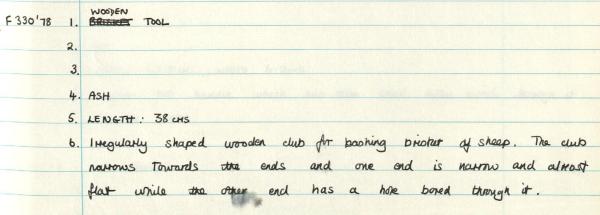 WOODEN
F330'78 1. BRISKET TOOL
2.
3.
4. ASH
5. LENGTH: 38 CMS
6. Irregularly shaped wooden club for bashing brisket of sheep. The club
narrows towards the ends and one end is narrow and almost
flat while the other end has a hole bored through it.